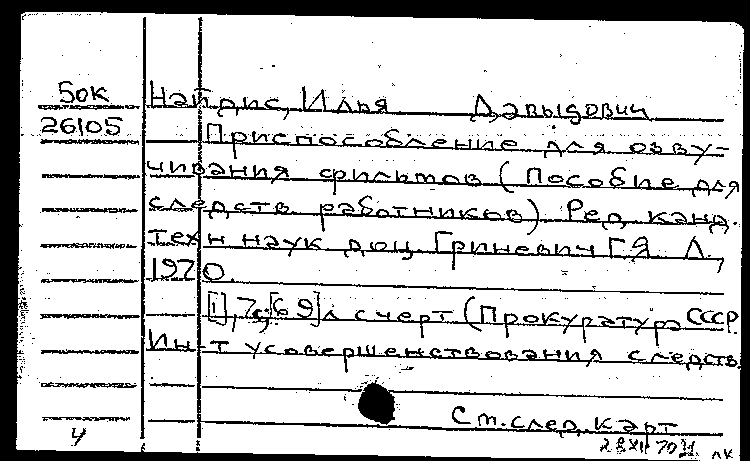 50к
26105
Найдис, Илья Давыдович
Приспособление для озву-
чивания фильмов (Пособие для
следств работников). Ред. канд.
техн наук доц. Гриневич Г.Я. Л.,
1970.
[1], 7с, [69]л с черт (Прокуратура СССР.
Ин-т усовершенствования следств.
См. след. карт
4
28 XII 70